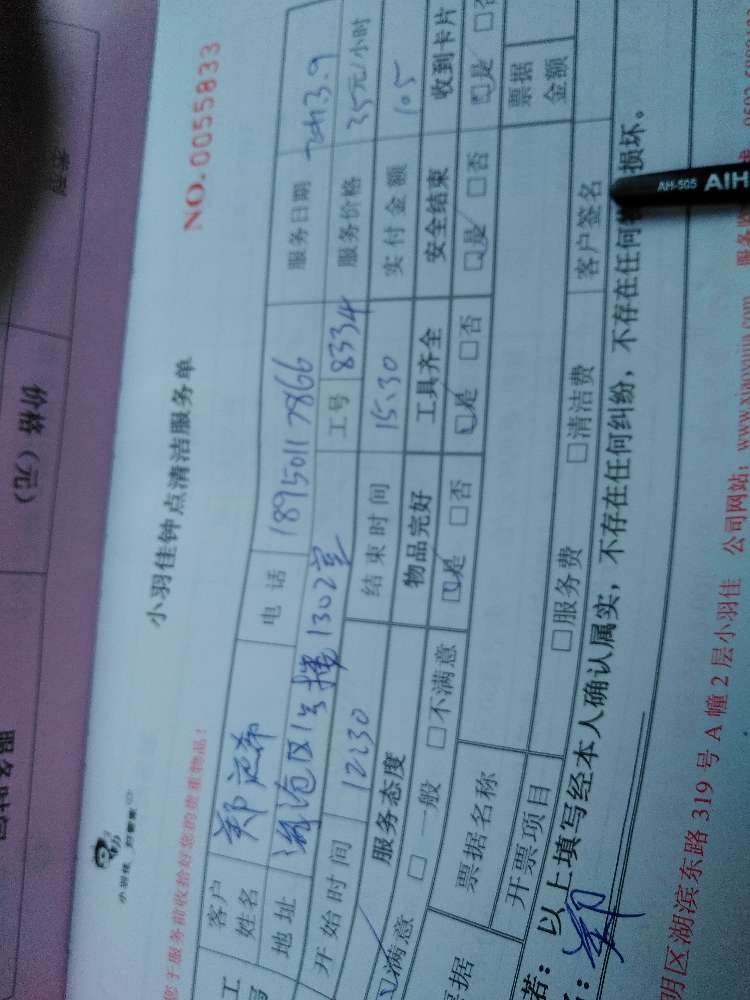 价格（元）
小羽佳钟点清洁服务单
NO.0055833
您于服务前收拾好您的贵重物品！
客户姓名 郑 电话 18950117866 服务日期 3.9
地址 海沧区 1302室 工号 8334 服务价格 35元/小时
开始时间 12:30 结束时间 15:30 实付金额 105
服务态度 物品完好 工具齐全 安全结束 收到卡片
满意 □一般 □不满意 □是 □否 □是 □否 □是 □否 □是 □否
票据名称 票据金额
开票项目 □服务费 □清洁费 客户签名
以上填写经本人确认属实，不存在任何纠纷，不存在任何 损坏。
郑
明区湖滨东路 319 号 A 幢 2 层小羽佳 公司网站：
AH-505 AIH